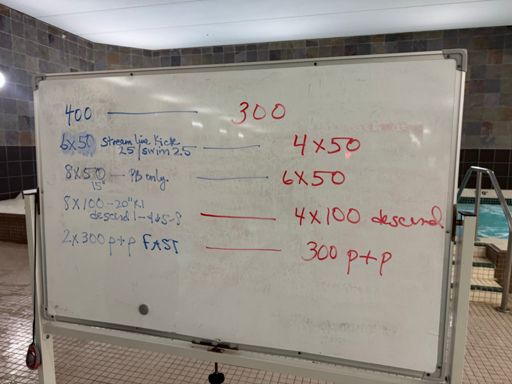 400 300
6x50 streamline Kick
25/swim 25 4x50
8x50 PB only. 6x50
15"
8x100 - 20" RI
descend 1-4 & 5-8 4x100 descend
2x300 p+p FAST 300 p+p